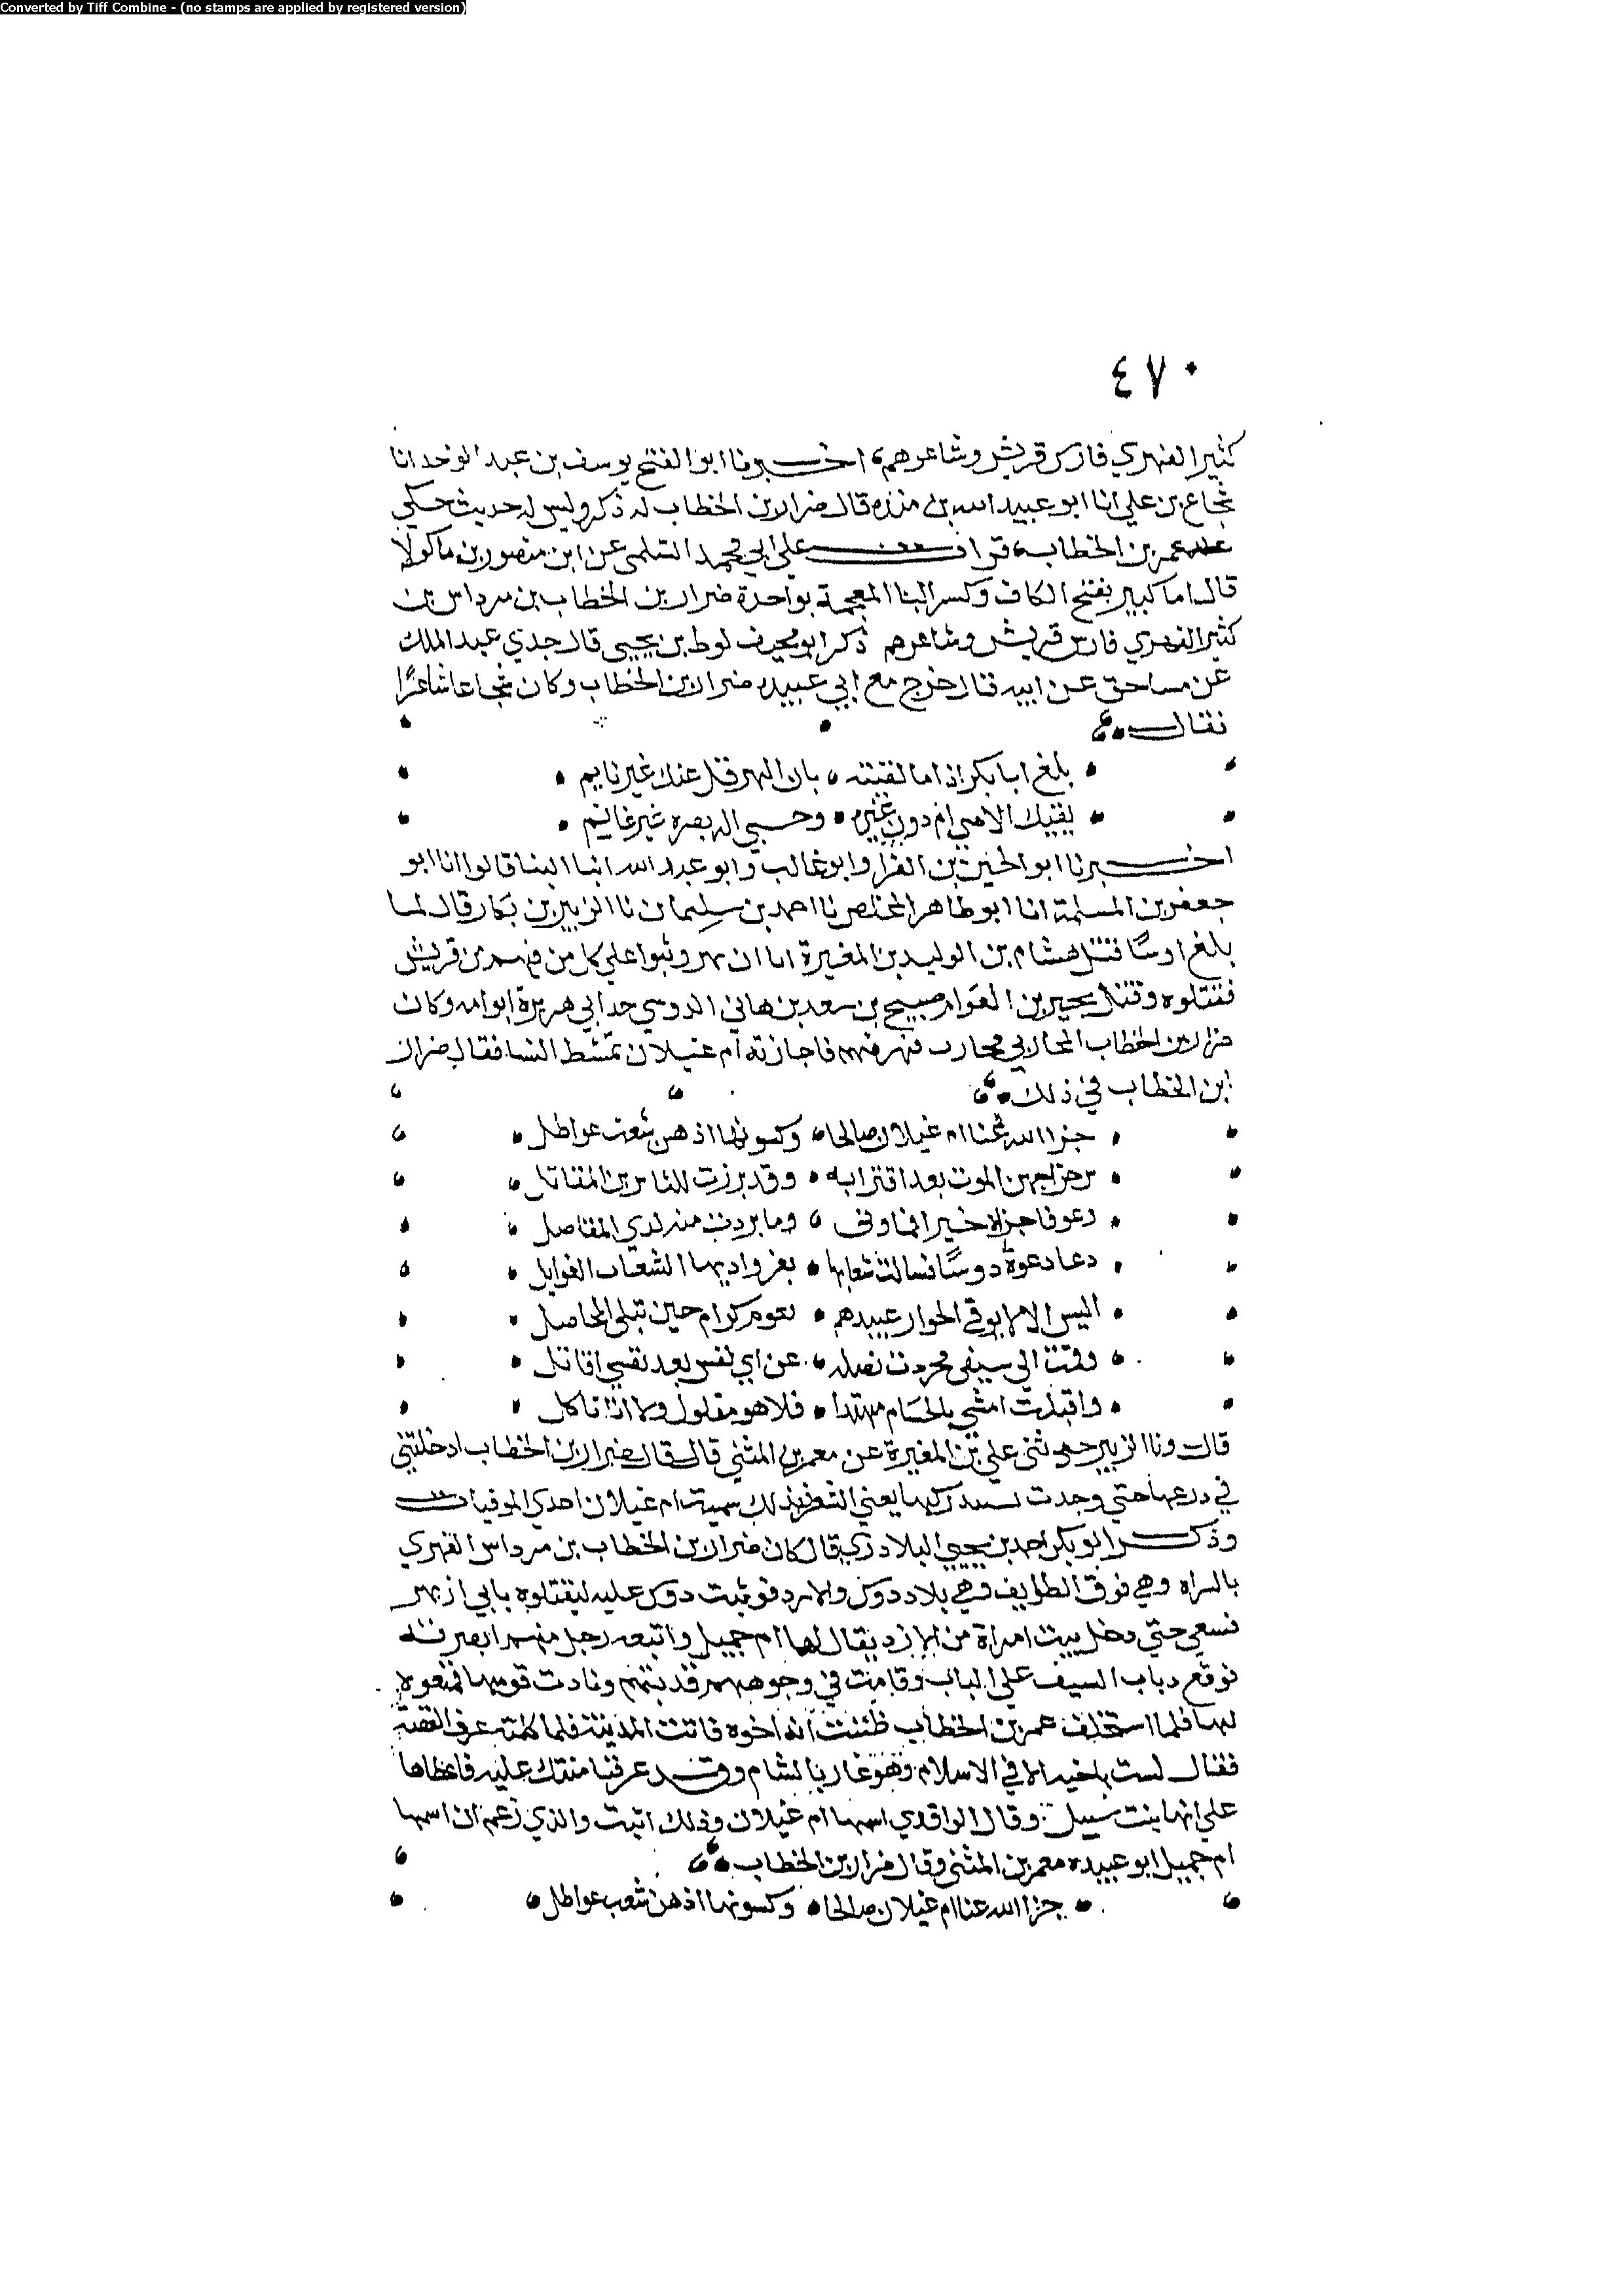 Converted by Tiff Combine - (no stamps are applied by registered version)
٤٧٠
كثير الفهري فارس قريش وشاعرهم، اخبرنا ابو الفتح يوسف بن عبد الوحد انا
شجاع بن علي انا ابو عبيد الله بن منده قال ضرار بن الخطاب له ذكر وليس له حديث حكي
عنه عمر بن الخطاب، قرات علي ابي محمد السلمي عن ابن منصور بن ماكولا
قال اما كبير بفتح الكاف وكسر البا المعجمة بواحدة ضرار بن الخطاب بن مرداس بن
كثير الفهري فارس قريش وشاعرهم ذكر ابو مخنف لوط بن يحيى قال جدي عبد الملك
عن مساحق عن ابيه قال خرج مع ابي عبيده ضرار بن الخطاب وكان شجاعا شاعرًا
فقال
بلغ ابا بكر اذا ما لقيته بان الهرقل عنك غير نايم
وحسبي اله بصره غير غانم
اخبرنا ابو الحسين بن الفرا وابو غالب وابو عبد الله ابنا البنا قالوا انا ابو
جعفر بن المسلمة انا ابو طاهر المخلص نا احمد بن سليمان نا الزبير بن بكار قال لما
بلغ اوسًا قتل هشام بن الوليد بن المغيرة وثبوا علي كل من فيهم من قريش
فقتلوه وقتل بجير بن العوام صبيح بن سعد بن هاني الدوسي جد ابي هريرة ابو امه وكان
ضرار بن الخطاب المحاربي محارب فهر فيهم فاجازته ام غيلان تمشط النسا فقال ضرار
ابن الخطاب في ذلك
جزا الله عنا ام غيلان صالحا ونسوتها اذ هن شعث عواطل
بعد اقترابه وقد برزت للثايرين المقاتل
وما بردت منه لدي المفاصل
دعا دعوة دوسًا فسالت شعابها بعز واديها الشعاب الغوايل
عبيدهم لقوم كرام حين تبلى المحاصل
وقمت الي سيفي مجردت نصله عن اي نفس بعد نفسي اقاتل
واقبلت امشي بالحسام مهندا فلا هو مفلول ولا انا ناكل
قال ونا الزبير حدثني علي بن المغيرة عن معمر بن المثني قال قال ضرار بن الخطاب ادخلتني
في درعها حتي وجدت ركبها يعني الشعر فبذلك سميت ام غيلان احدي الموفيات
وذكر ابو بكر احمد بن يحيي البلاذري قال كان ضرار بن الخطاب بن مرداس الفهري
بالسراه وهي فوق الطايف وهي بلاد دوس والازد فوثبت دوس عليه ليقتلوه بابي ازيهر
فسعي حتي دخل بيت امراة من الازد يقال لها ام جميل واتبعه رجل منهم
فوقع ذباب السيف علي الباب وقامت في وجوههم فذبتهم ونادت قومها فمنعوه
لها فلما استخلف عمر بن الخطاب ظننت انه اخوه فاتت المدينة فلما كلمته عرف القصة
فقال لست باخيه الا في الاسلام وهو غاز بالشام وقد عرفنا منتك عليه فاعطاها
علي انها بنت سبيل وقال الواقدي اسمها ام غيلان وذلك اثبت والذي زعم ان اسمها
ام جميل ابو عبيده معمر بن المثني وقال ضرار بن الخطاب
جزا الله عنا ام غيلان صالحا ونسوتها اذ هن شعب عواطل